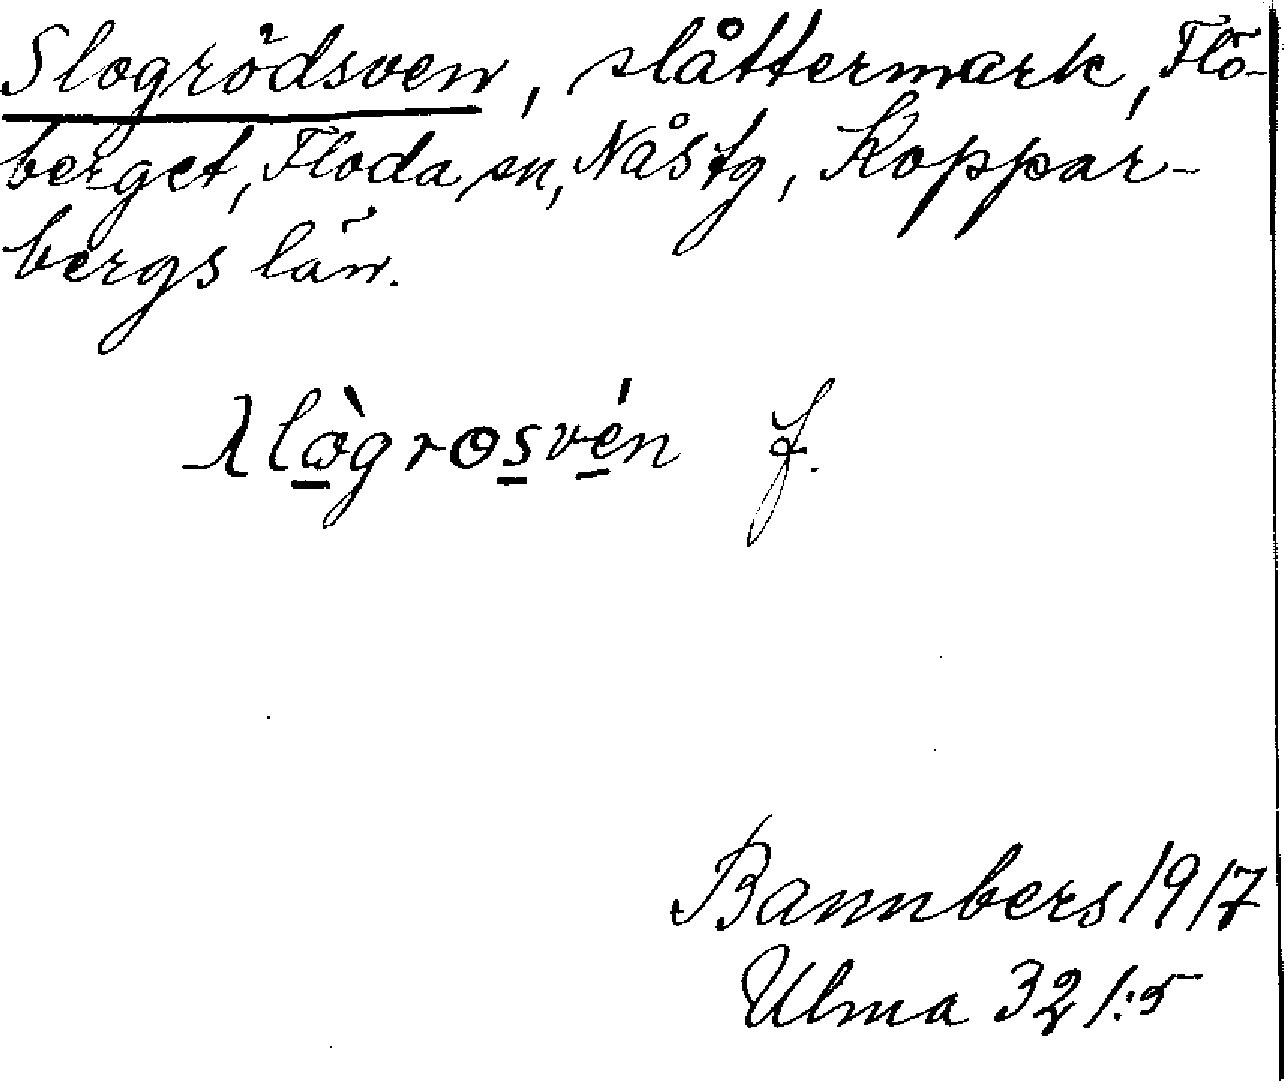 Slogrödsven, slåttermark, Flö-
berget, Floda sn, Nås tg, Koppar-
bergs län.
slògrosvén f.
Bannbers 1917
Ulma 321:5